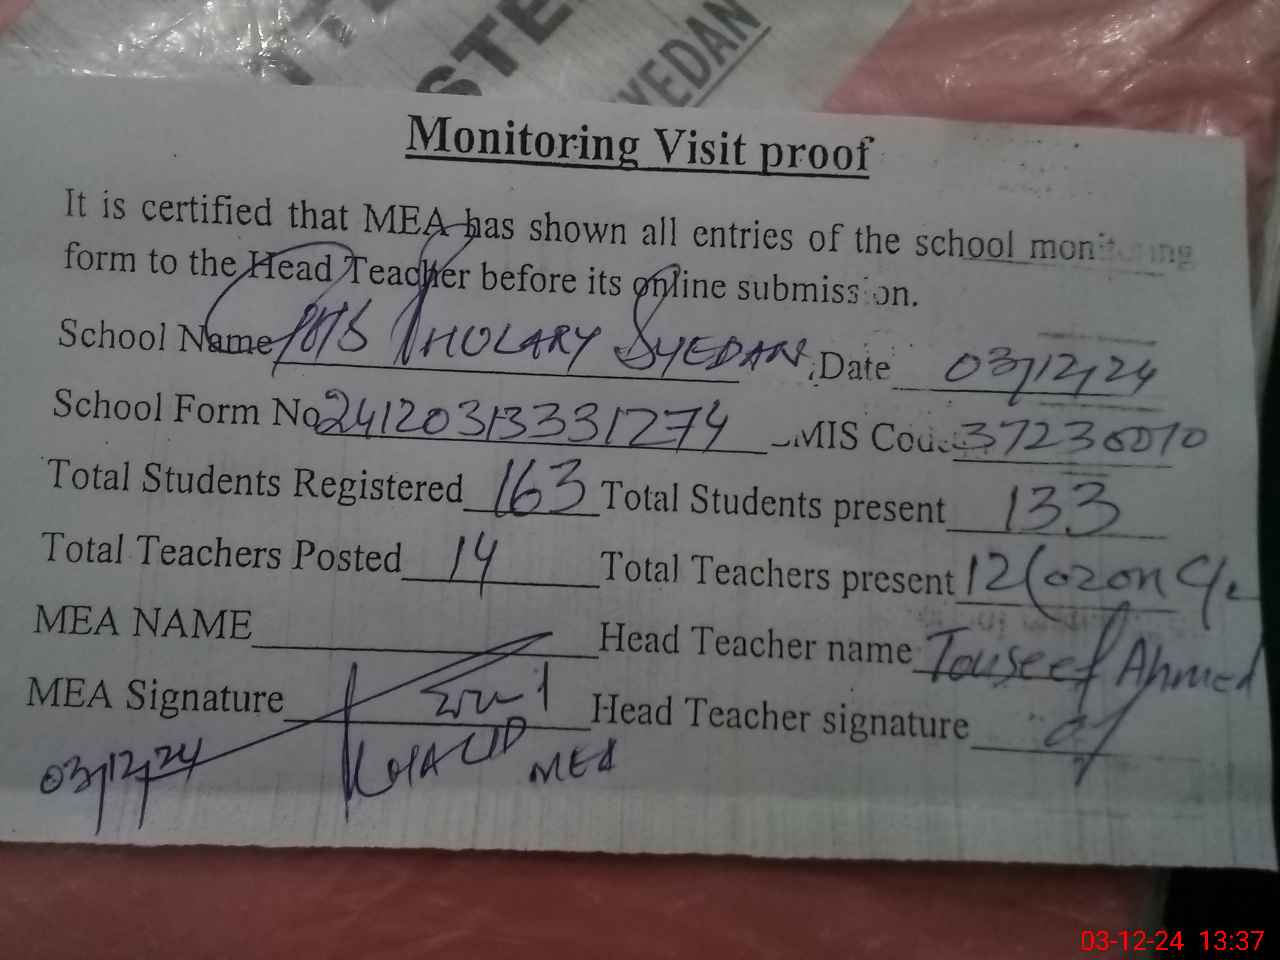 STE
YEDAN
Monitoring Visit proof
It is certified that MEA has shown all entries of the school monitoring
form to the Head Teacher before its online submission.
School Name DHOLARY SYEDAN, Date 03,12,24
School Form No 2412031333 1274 EMIS Code 37230070
Total Students Registered 163 Total Students present 133
Total Teachers Posted 14 Total Teachers present 12 (02 on C/L
MEA NAME Head Teacher name Touseef Ahmed
MEA Signature Head Teacher signature
03,12,24 KHALID MEA
03-12-24 13:37